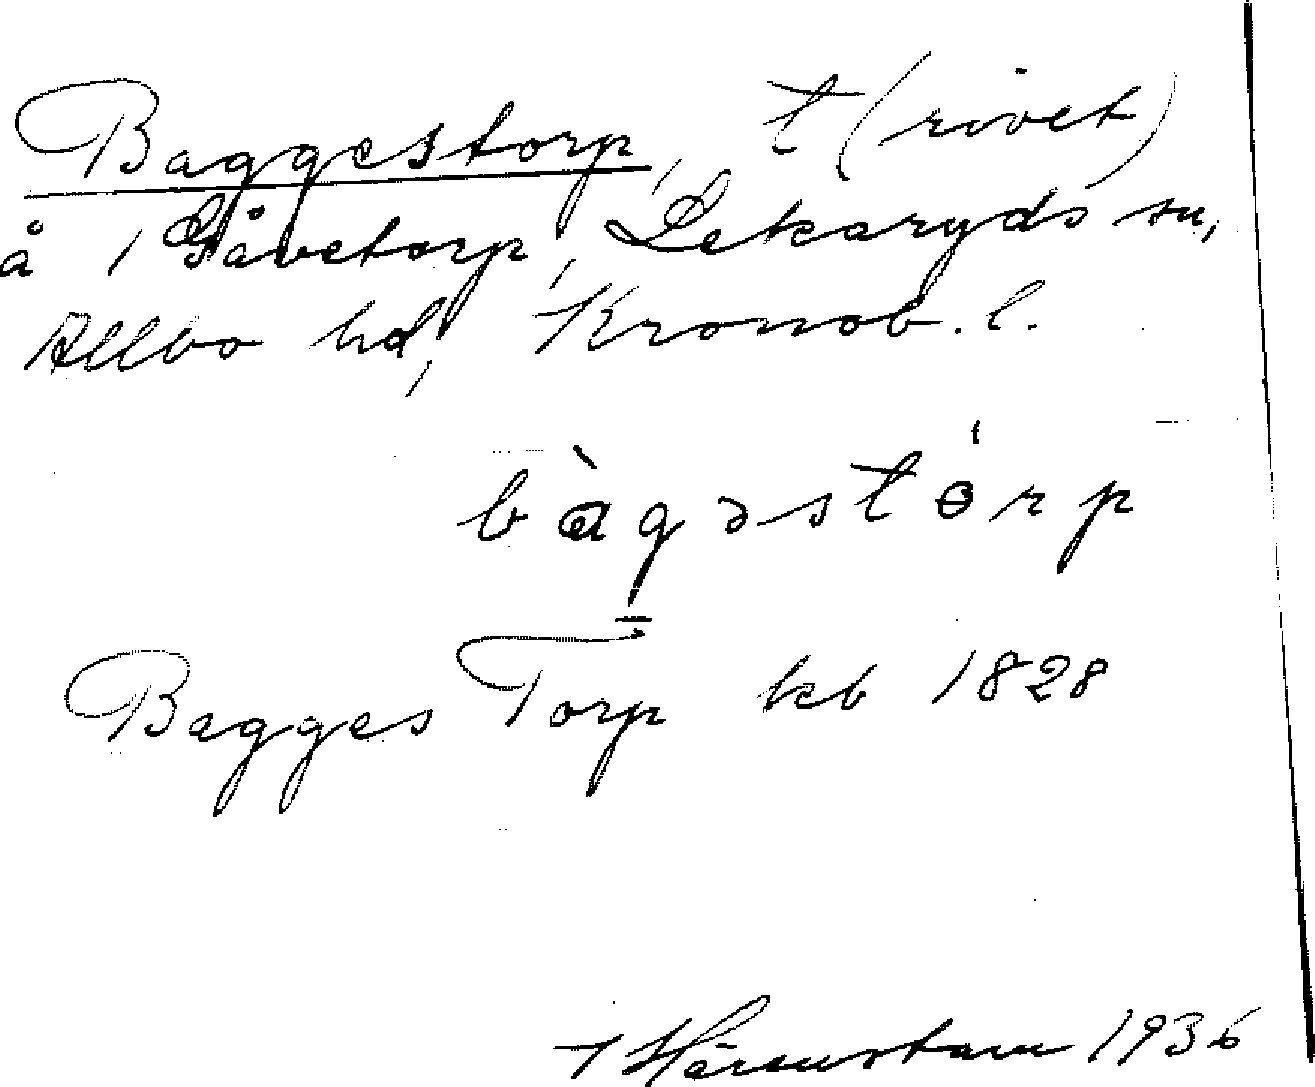 Baggestorp, t (rivet)
å 1 Gåvetorp, Lekaryds sn,
Allbo hd, Kronob. l.
bàgəstɵ́rp
Bagges Torp kb 1828
1936